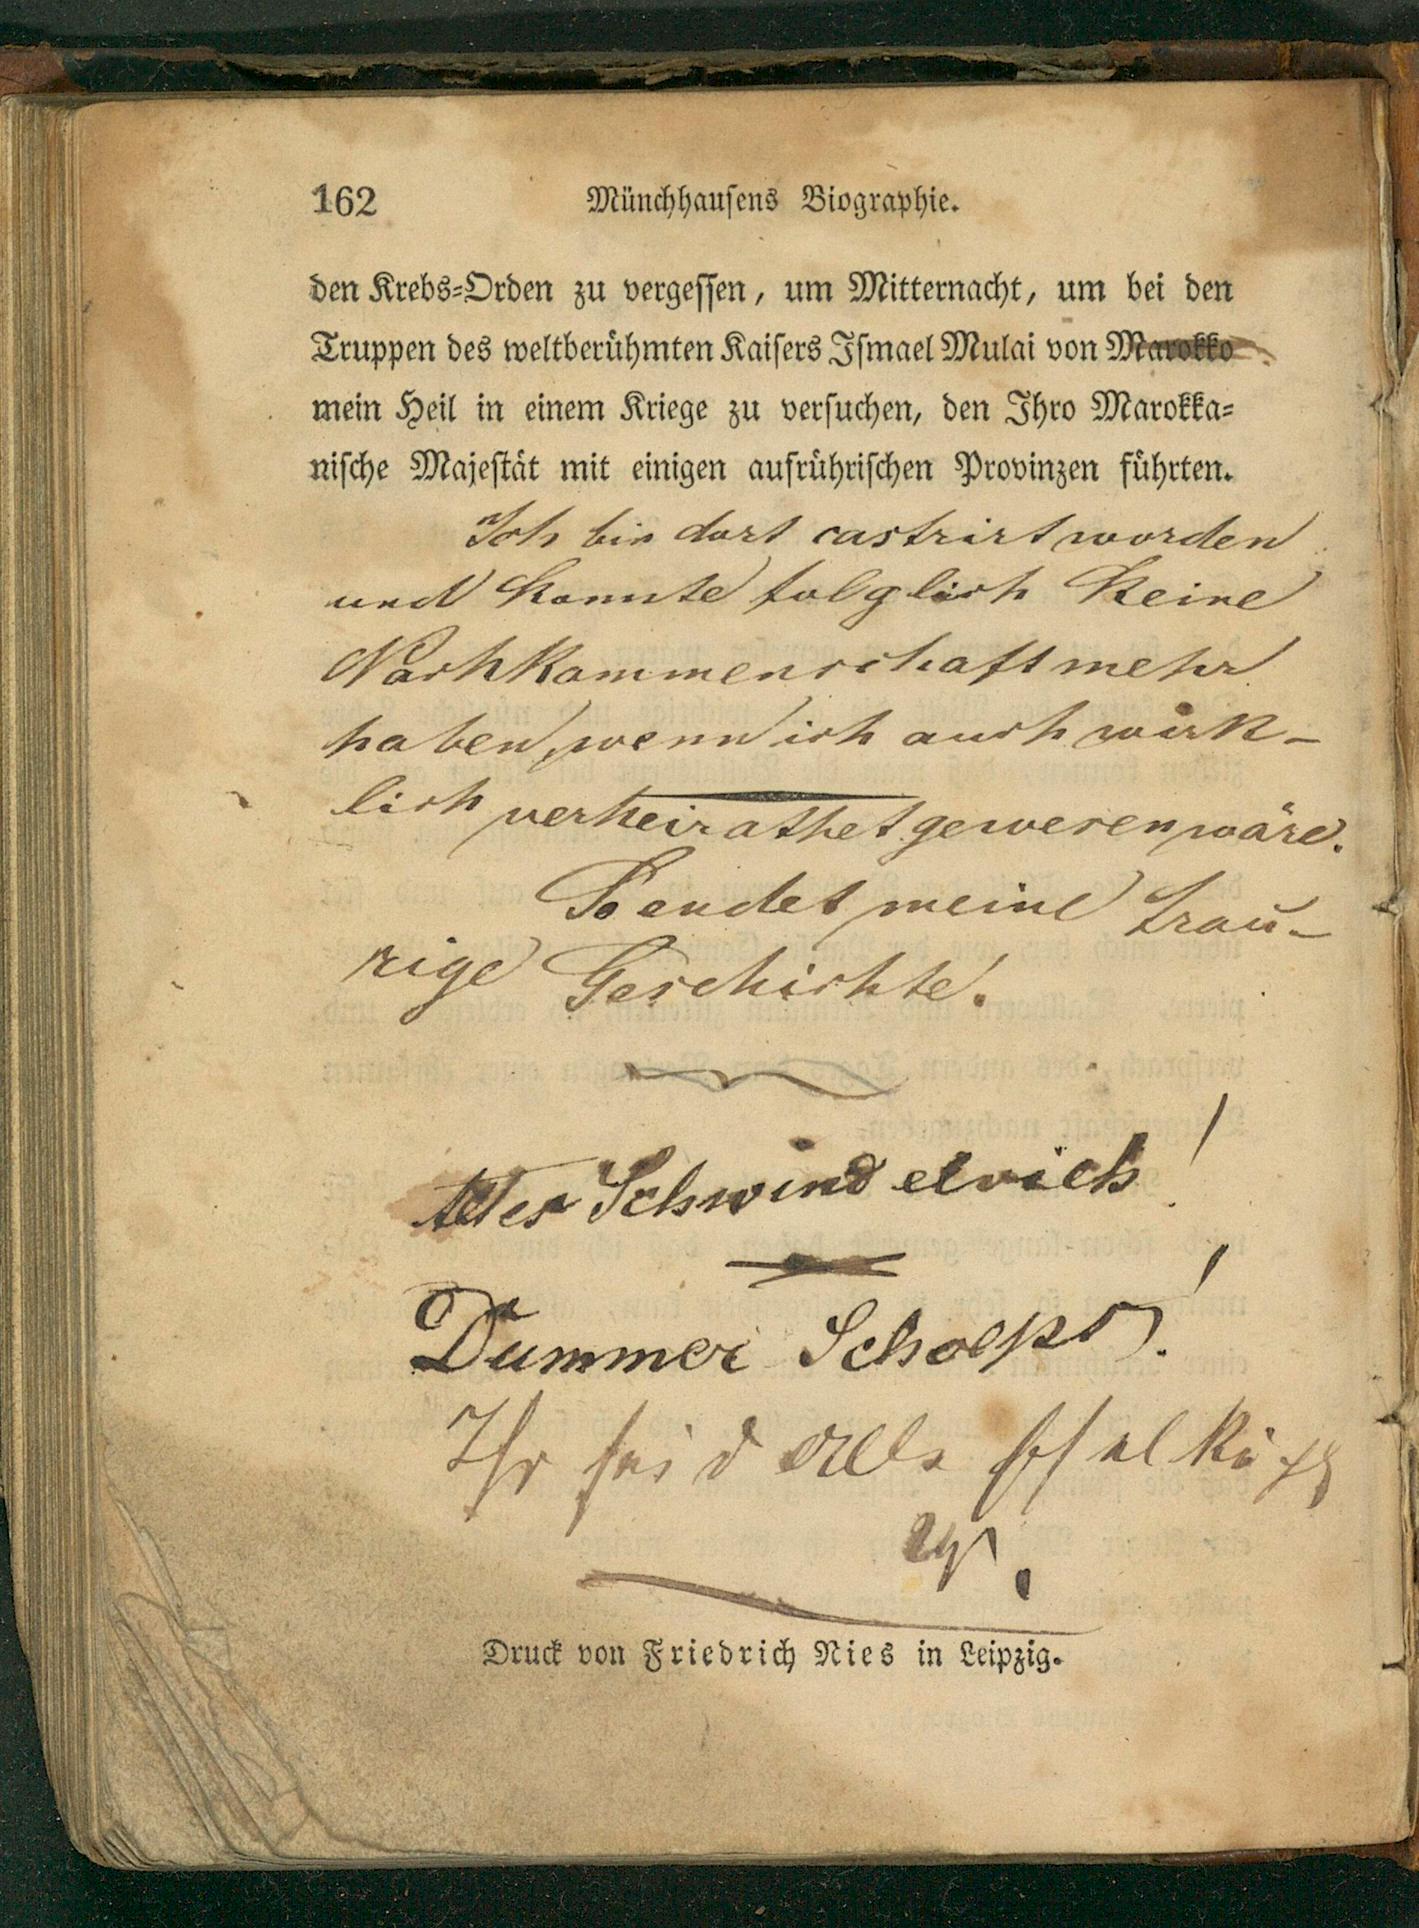 162 Münchhausens Biographie.
den Krebs-Orden zu vergessen, um Mitternacht, um bei den
Truppen des weltberühmten Kaisers Ismael Mulai von Marokko
mein Heil in einem Kriege zu versuchen, den Ihro Marokka-
nische Majestät mit einigen aufrührischen Provinzen führten.
Ich bin dort castrirt worden
und konnte folglich keine
Nachkommenschaft mehr
haben, wenn ich auch wirk-
lich verheirathet gewesen wäre.
So endet meine trau-
rige Geschichte.
Alter Schwindelvich!
Dummer Schoeps!
Ihr seid alle
Druck von Friedrich Nies in Leipzig.